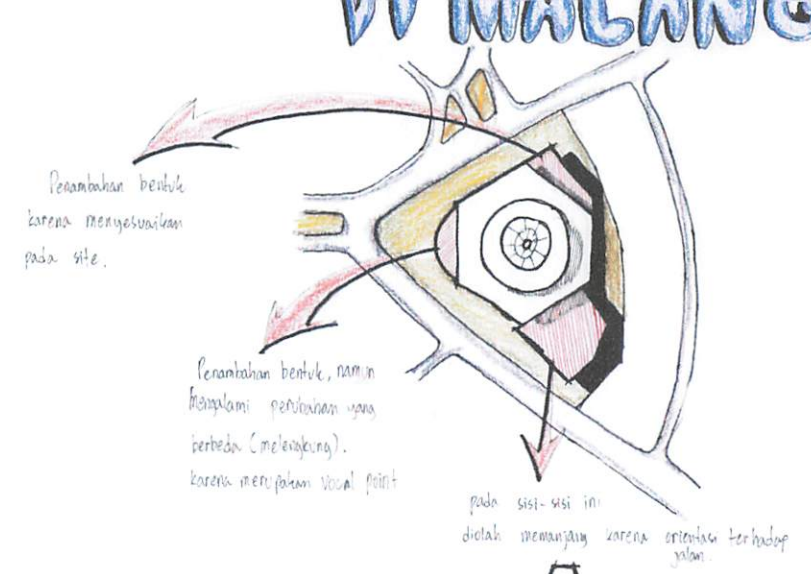 DI MALANG
Penambahan bentuk
karena menyesuaikan
pada site.
Penambahan bentuk, namun
Mengalami perubahan yang
berbeda (melengkung).
karena merupakan vocal point
pada sisi-sisi ini
diolah memanjang karena orientasi terhadap
jalan.